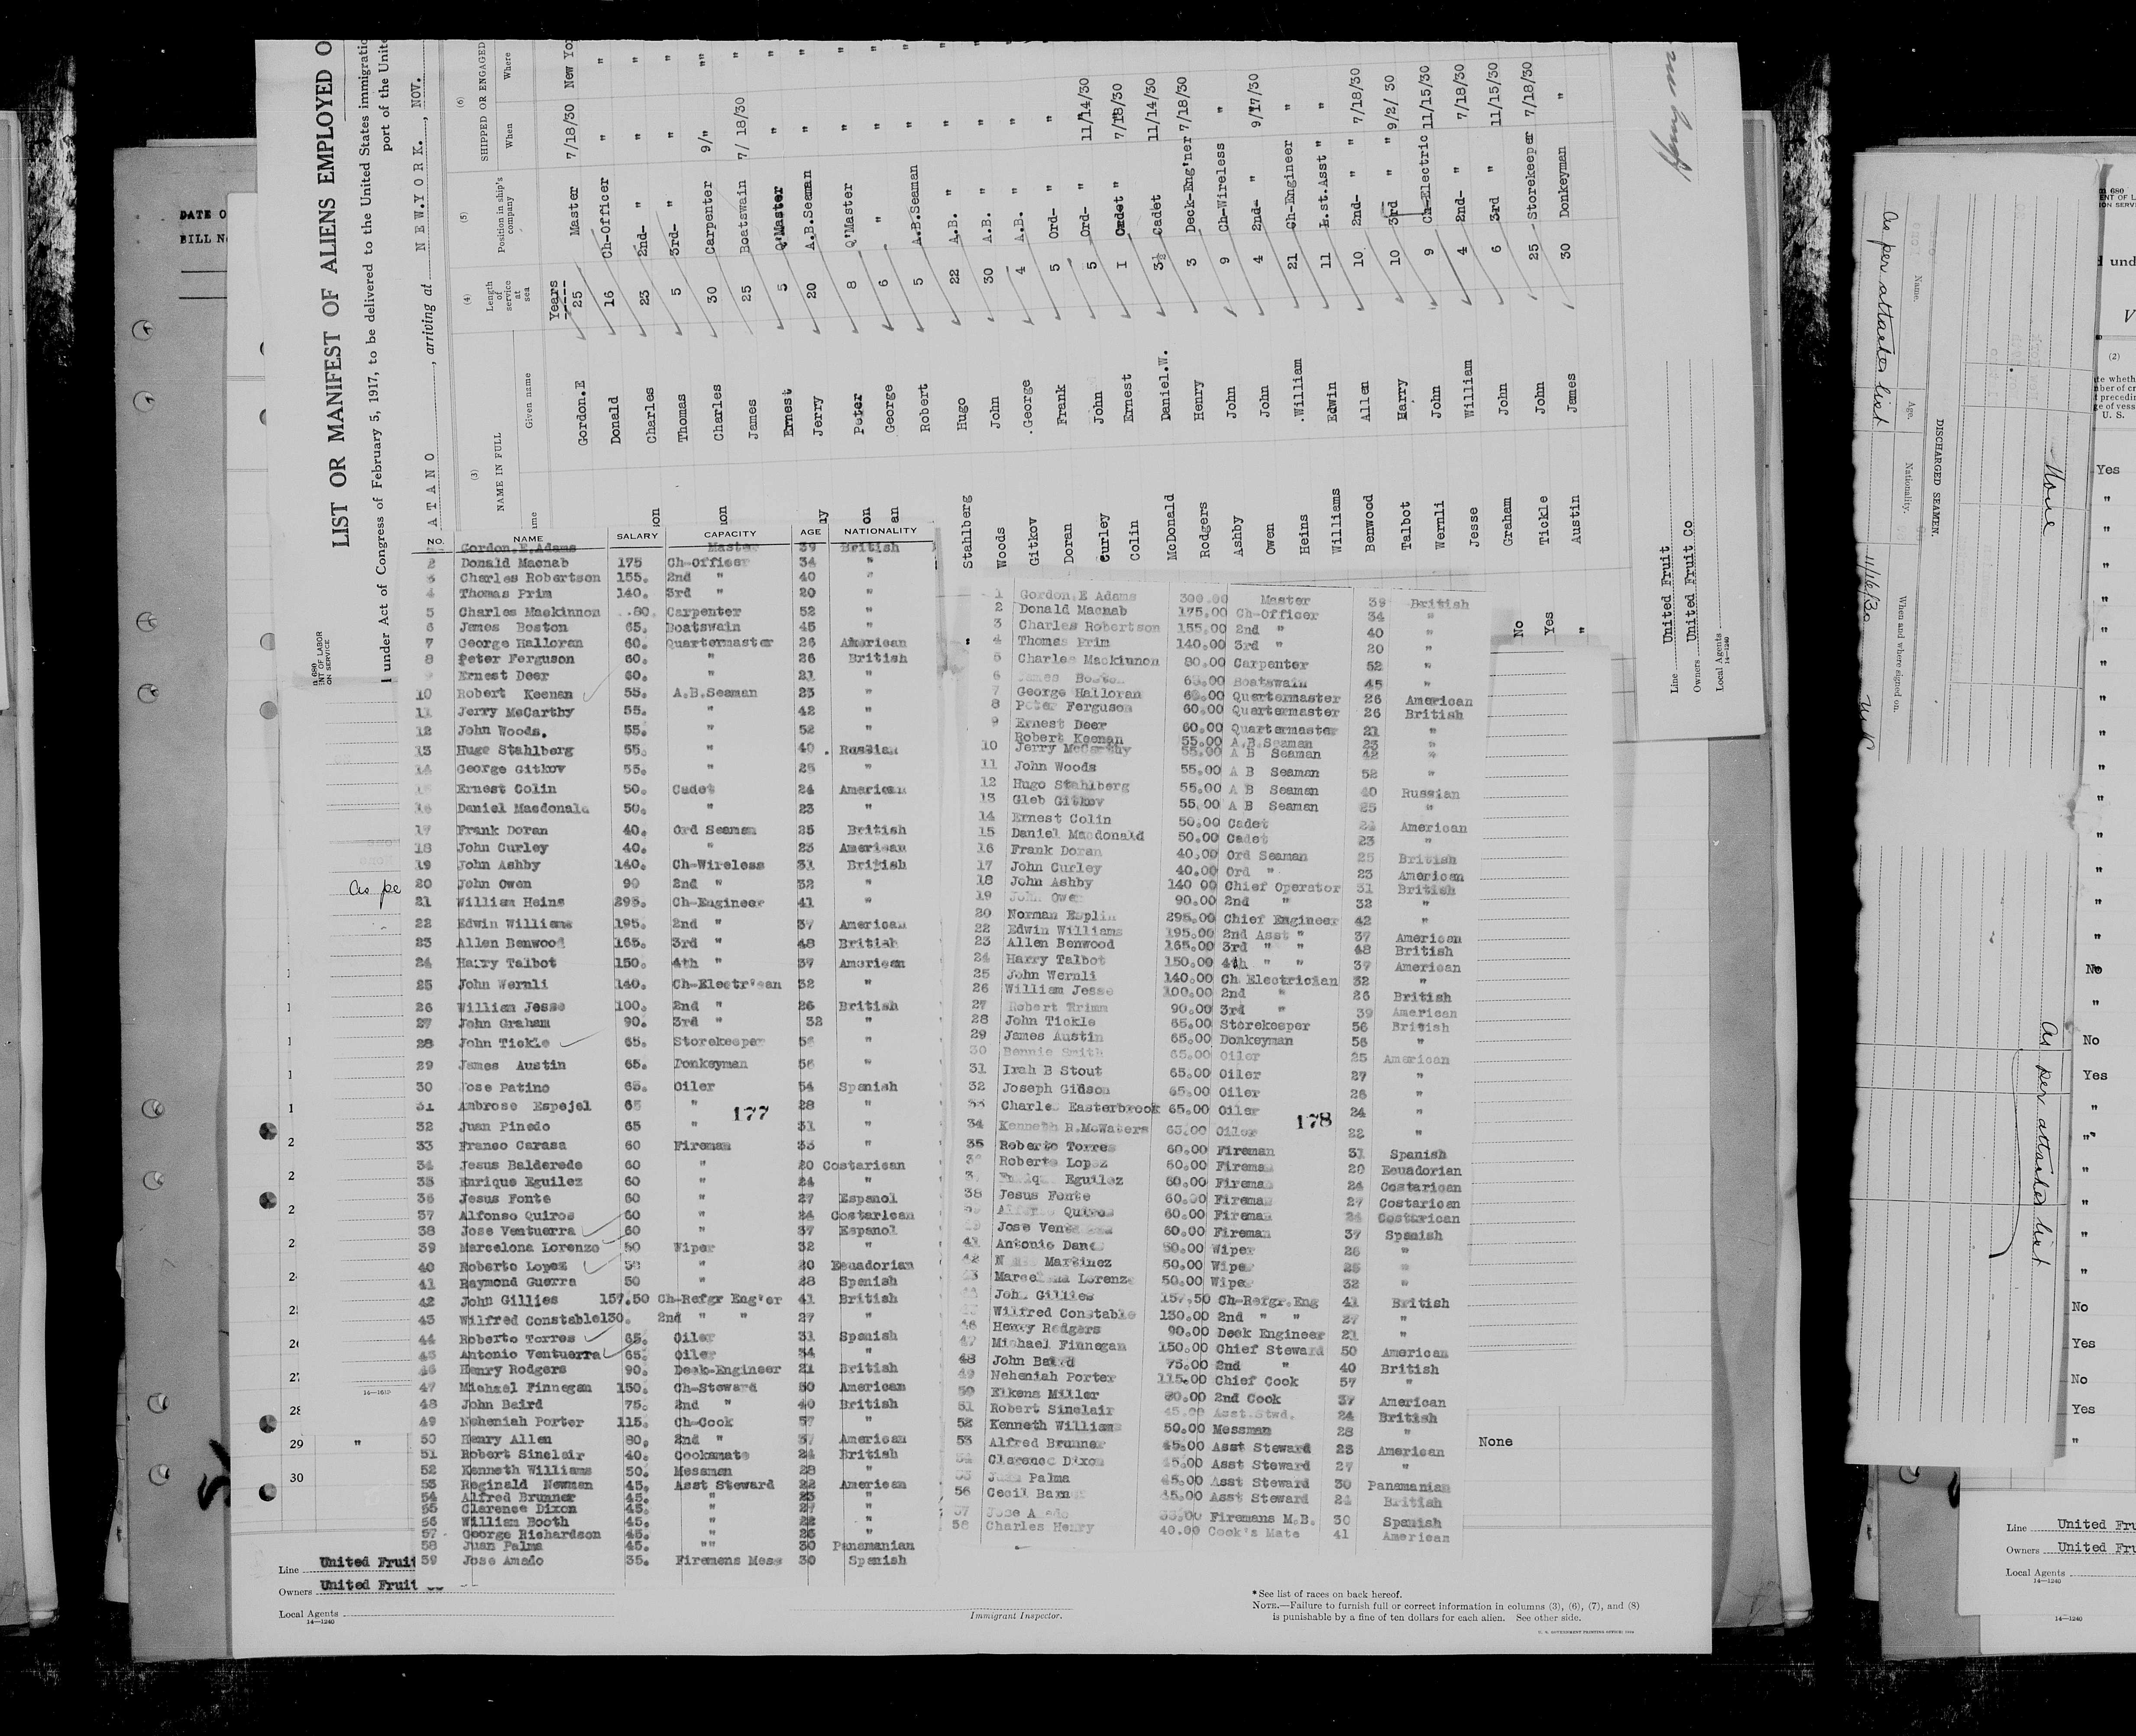 LIST OR MANIFEST OF ALIENS EMPLOYED O
under Act of Congress of February 5, 1917, to be delivered to the United States immigratio
port of the Unite
A T A N O , arriving at N E W.Y O R K. , NOV.
(3) (4) (5) (6)
NAME IN FULL
Given name
Length of service at sea
Position in ship's company
SHIPPED OR ENGAGED
When Where
Years
Gordon.E 25 Master 7/18/30 New Yo
Donald 16 Ch-Officer " "
Charles 23 2nd- " " "
Thomas 5 3rd- " " "
Charles 30 Carpenter 9/" ""
James 25 Boatswain 7/ 18/30 "
Ernest 5 Q'Master " "
Jerry 20 A.B.Seaman " "
Peter 8 Q'Master " "
George 6 " " "
Robert 5 A.B.Seaman " "
Stahlberg Hugo 22 A.B. " " "
Woods John 30 A.B. " " "
Gitkov .George 4 A.B. " " "
Doran Frank 5 Ord- " " "
Curley John 5 Ord- " 11/14/30
Colin Ernest 1 Cadet " 7/18/30
McDonald Daniel.W. 3½ Cadet 11/14/30
Rodgers Henry 3 Deck-Eng'ner 7/18/30
Ashby John 9 Ch-Wireless "
Owen John 4 2nd- " 9/17/30
Heins .William 21 Ch-Engineer "
Williams Edwin 11 1.st.Asst " "
Benwood Allen 10 2nd- " " 7/18/30
Talbot Harry 10 3rd " " 9/2/ 30
Wernli John 9 Ch-Electric 11/15/30
Jesse William 4 2nd- " 7/18/30
Graham John 6 3rd " 11/15/30
Tickle John 25 Storekeeper 7/18/30
Austin James 30 Donkeyman "
Line United Fruit
Owners United Fruit Co
Local Agents
14—1240
No
Yes
"
NO. NAME SALARY CAPACITY AGE NATIONALITY
Gordon.E.Adams Master 39 British
2 Donald Macnab 175 Ch-Officer 34 "
3 Charles Robertson 155. 2nd " 40 "
4 Thomas Prim 140. 3rd " 20 "
5 Charles Mackinnon .80. Carpenter 52 "
6 James Boston 65. Boatswain 45 "
7 George Halloran 60. Quartermaster 26 American
8 Peter Ferguson 60. " 26 British
9 Ernest Deer 60. " 21 "
10 Robert Keenan 55. A.B.Seaman 23 "
11 Jerry McCarthy 55. " 42 "
12 John Woods. 55. " 52 "
13 Huge Stahlberg 55. " 40 . Russian
14 George Gitkov 55. " 25 "
15 Ernest Colin 50. Cadet 24 American
16 Daniel Macdonald 50. " 23 "
17 Frank Doran 40. Ord Seaman 25 British
18 John Curley 40. " 23 American
19 John Ashby 140. Ch-Wireless 31 British
20 John Owen 90 2nd " 32 "
21 William Heins 295. Ch-Engineer 41 "
22 Edwin Williams 195. 2nd " 37 American
23 Allen Benwood 165. 3rd " 48 British
24 Harry Talbot 150. 4th " 37 American
25 John Wernli 140. Ch-Electr'can 32 "
26 William Jesse 100. 2nd " 26 British
27 John Graham 90. 3rd " 32 "
28 John Tickle 65. Storekeeper 56 "
29 James Austin 65. Donkeyman 56 "
30 Jose Patino 65. Oiler 54 Spanish
31 Ambrose Espejel 65 " 28 "
177
32 Juan Pinedo 65 " 31 "
33 Franco Carasa 60 Fireman 33 "
34 Jesus Balderede 60 " 20 Costarican
35 Enrique Eguilez 60 " 24 "
36 Jesus Fonte 60 " 27 Espanol
37 Alfonso Quiros 60 " 24 Costarican
38 Jose Ventuerra 60 " 37 Espanol
39 Marcelona Lorenzo 50 Wiper 32 "
40 Roberto Lopez 50 " 20 Ecuadorian
41 Raymond Guerra 50 " 28 Spanish
42 John Gillies 157.50 Ch-Refgr Eng'er 41 British
43 Wilfred Constable 130. 2nd " " 27 "
44 Roberto Torres 65. Oiler 31 Spanish
45 Antonio Ventuerra 65. Oiler 34 "
46 Henry Rodgers 90. Deck-Engineer 21 British
47 Michael Finnegan 150. Ch-Steward 50 American
48 John Baird 75. 2nd " 40 British
49 Neheniah Porter 115. Ch-Cook 57 "
50 Henry Allen 80. 2nd " 37 American
51 Robert Sinclair 40. Cooksmate 24 British
52 Kenneth Williams 50. Messman 28 "
53 Reginald Newman 45. Asst Steward 22 American
54 Alfred Brunner 45. " 23 "
55 Clarence Dixon 45. " 27 "
56 William Booth 45. " 22 "
57 George Richardson 45. " 23 "
58 Juan Palma 45. "" 30 Panamanian
59 Jose Amado 35. Firemens Mess 30 Spanish
1 Gordon.E Adams 300.00 Master 39 British
2 Donald Macnab 175.00 Ch-Officer 34 "
3 Charles Robertson 155.00 2nd " 40 "
4 Thomas Prim 140.00 3rd " 20 "
5 Charles Mackinnon 80.00 Carpenter 52 "
6 James Boston 65.00 Boatswain 45 "
7 George Halloran 60.00 Quartermaster 26 American
8 Peter Ferguson 60.00 Quartermaster 26 British
9 Ernest Deer 60.00 Quartermaster 21 "
Robert Keenan 55.00 A.B.Seaman 23 "
10 Jerry McCarthy 55.00 A B Seaman 42 "
11 John Woods 55.00 A B Seaman 52 "
12 Hugo Stahlberg 55.00 A B Seaman 40 Russian
13 Gleb Gitkov 55.00 A B Seaman 25 "
14 Ernest Colin 50.00 Cadet 24 American
15 Daniel Macdonald 50.00 Cadet 23 "
16 Frank Doran 40.00 Ord Seaman 25 British
17 John Curley 40.00 Ord " 23 American
18 John Ashby 140 00 Chief Operator 31 British
19 John Owen 90.00 2nd " 32 "
20 Norman Esplin 295.00 Chief Engineer 42 "
22 Edwin Williams 195.00 2nd Asst " 37 American
23 Allen Benwood 165.00 3rd " " 48 British
24 Harry Talbot 150.00 4th " " 37 American
25 John Wernli 140.00 Ch Electrician 32 "
26 William Jesse 100.00 2nd " 26 British
27 Robert Trimm 90.00 3rd " 39 American
28 John Tickle 65.00 Storekeeper 56 British
29 James Austin 65.00 Donkeyman 56 "
30 Bennie Smith 65.00 Oiler 25 American
31 Irah B Stout 65.00 Oiler 27 "
32 Joseph Gibson 65.00 Oiler 26 "
33 Charles Easterbrook 65.00 Oiler 24 "
178
34 Kenneth R.McWaters 65.00 Oiler 22 "
35 Roberto Torres 60.00 Fireman 31 Spanish
Roberto Lopez 60.00 Fireman 20 Ecuadorian
Eguilez 60.00 Fireman 24 Costarican
38 Jesus Fonte 60.00 Fireman 27 Costarican
Quiros 60.00 Fireman 24 Costarican
Jose 60.00 Fireman 37 Spanish
41 Antonio 50.00 Wiper 26 "
42 Martinez 50.00 Wiper 25 "
Lorenzo 50.00 Wiper 32 "
John Gillies 157.50 Ch-Refgr.Eng 41 British
Wilfred Constable 130.00 2nd " " 27 "
46 Henry Rodgers 90.00 Deck Engineer 21 "
47 Michael Finnegan 150.00 Chief Steward 50 American
48 John Baird 75.00 2nd " 40 British
49 Neheniah Porter 115.00 Chief Cook 57 "
50 Elkens Miller 80.00 2nd Cook 37 American
51 Robert Sinclair 45.00 Asst.Stwd. 24 British
52 Kenneth Williams 50.00 Messman 28 "
53 Alfred Brunner 45.00 Asst Steward 23 American
54 Clarence Dixon 45.00 Asst Steward 27 "
55 Juan Palma 45.00 Asst Steward 30 Panamanian
56 Cecil 45.00 Asst Steward 24 British
57 Jose Amado 35.00 Firemans M.B. 30 Spanish
58 Charles Henry 40.00 Cook's Mate 41 American
None
29 "
30
Line United Fruit
Owners United Fruit
Local Agents
14—1240
Immigrant Inspector.
*See list of races on back hereof.
NOTE.—Failure to furnish full or correct information in columns (3), (6), (7), and (8)
is punishable by a fine of ten dollars for each alien. See other side.
U. S. GOVERNMENT PRINTING OFFICE
DATE O
BILL N
As pe
DISCHARGED SEAMEN.
Name. Age. Nationality. When and where signed on.
As per attached list 11/16/30 N.Y.
None
As per attached list
Yes
No
No
Yes
No
Yes
No
Yes
Line United Fru
Owners United Fru
Local Agents
14—1240